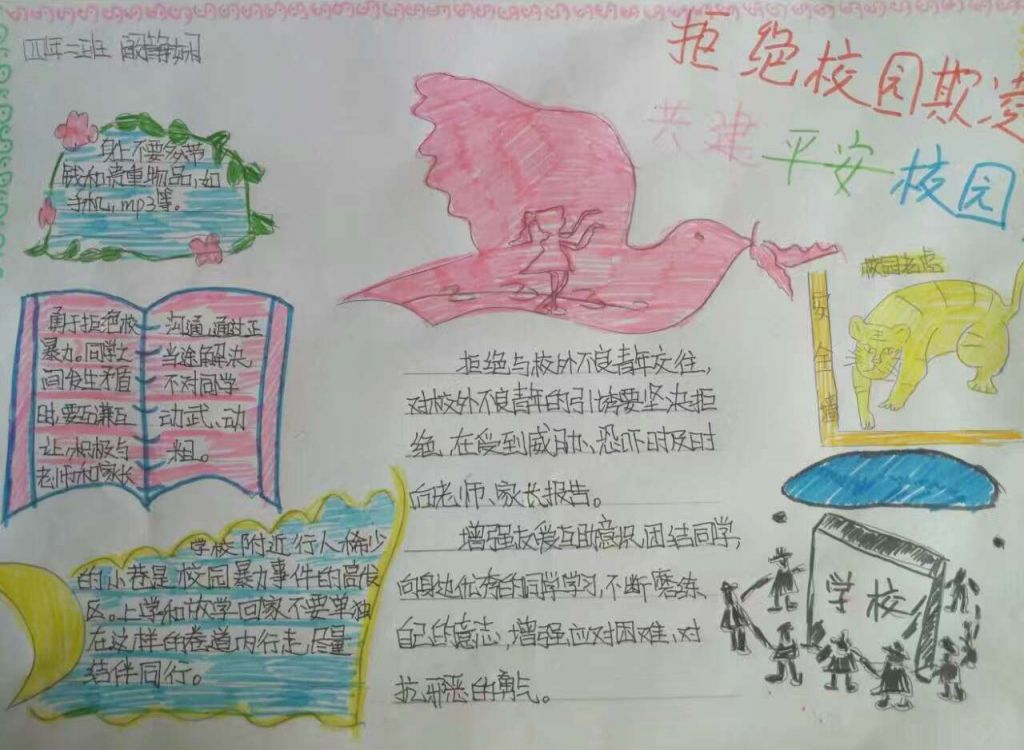 四年二班
拒绝校园欺凌
共建平安校园
身上不要带节
钱和贵重物品,如
手机,mp3等。
校园老虎
安全墙
勇于拒绝校
暴力。同学之
间发生矛盾
时,要互谦互
让,积极与
老师和家长
沟通,通过正
当途解决,
不对同学
动武、动
粗。
拒绝与校外不良青年交往,
对校外不良青年的引诱要坚决拒
绝,在受到威胁、恐吓时及时
向老师、家长报告。
增强友爱互助意识,团结同学,
向身边优秀的同学学习,不断磨练
自己的意志,增强应对困难、对
抗邪恶的勇气。
学校附近行人稀少
的小巷是校园暴力事件的高发
区。上学和放学回家不要单独
在这样的巷道内行走,尽量
结伴同行。
学校